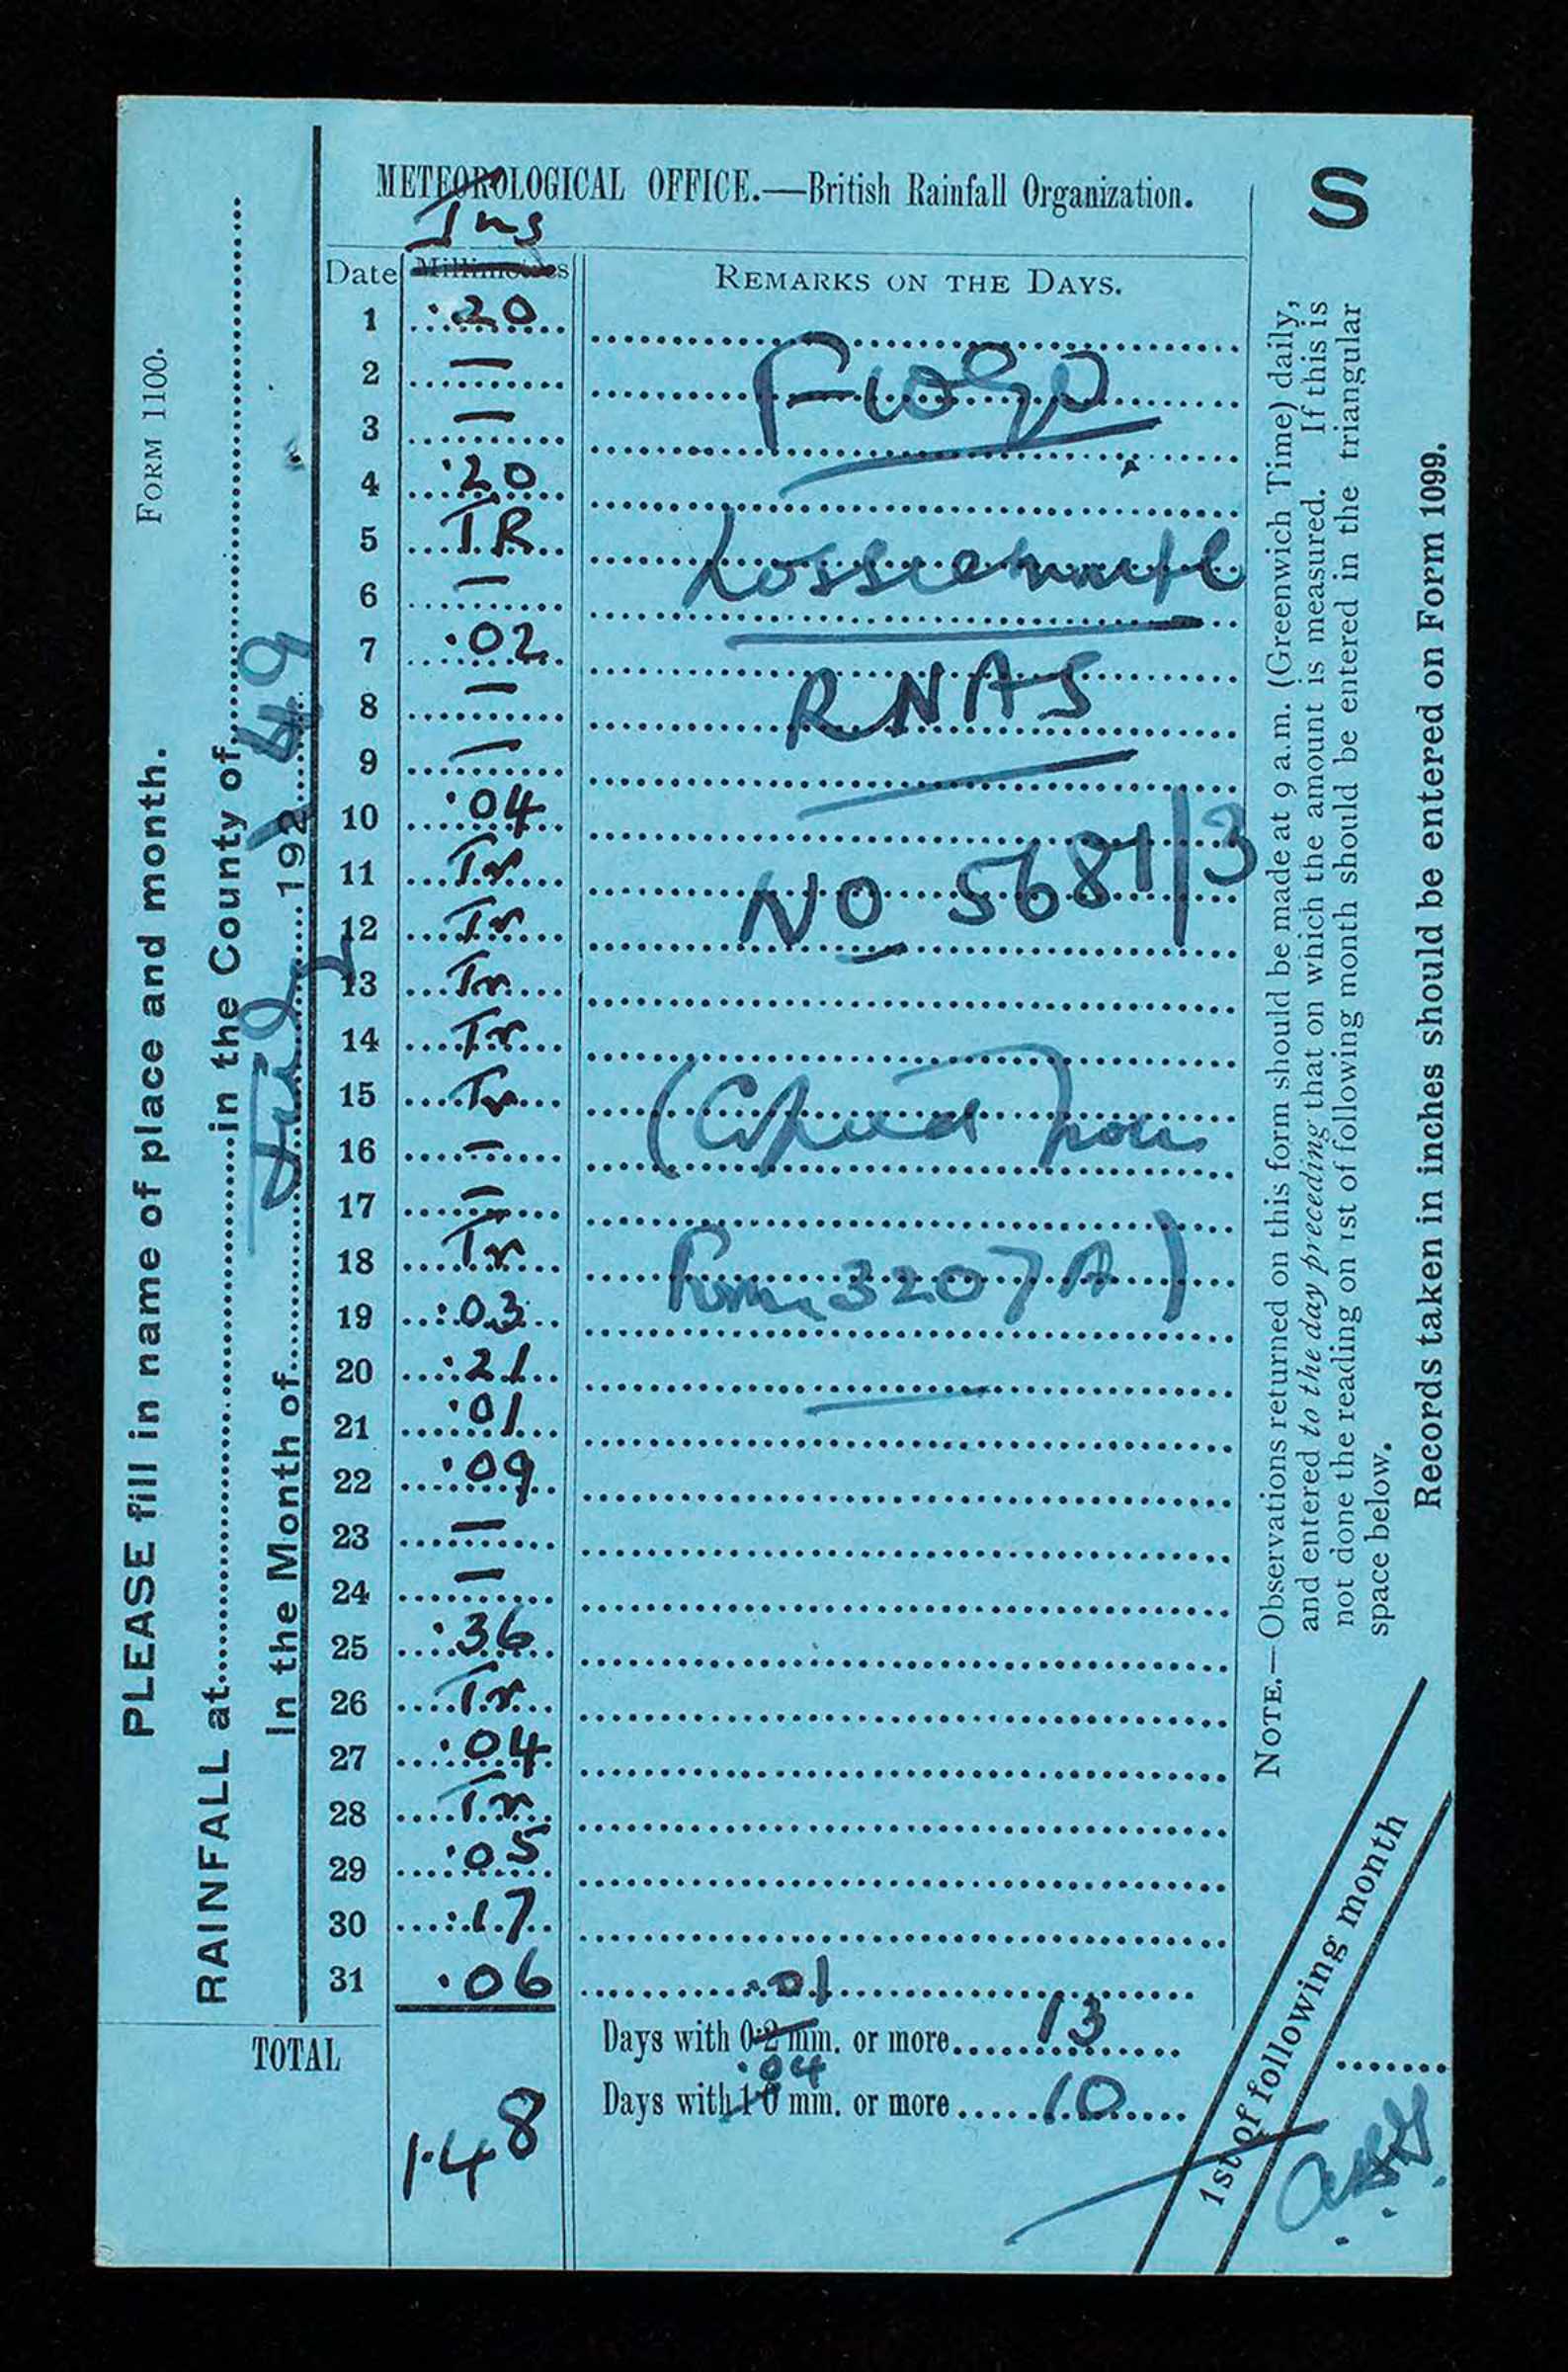 FORM 1100.
PLEASE fill in name of place and month.
RAINFALL at in the County of
In the Month of July 192 49
METEOROLOGICAL OFFICE.—British Rainfall Organization.
S
Ins
Date Millimetres REMARKS ON THE DAYS.
1 ·20
2 —
3 —
4 ·20
5 TR
6 —
7 ·02
8 —
9 —
10 ·04
11 Tr
12 Tr
13 Tr
14 Tr
15 Tr
16 —
17 —
18 Tr
19 ·03
20 ·21
21 ·01
22 ·09
23 —
24 —
25 ·36
26 Tr
27 ·04
28 Tr
29 ·05
30 ·17
31 ·06
Lossiemouth
RNAS
NO 5681/3
(Copied from
Form 3207A)
TOTAL 1·48
·01
Days with 0·2 mm. or more 13
·04
Days with 1·0 mm. or more 10
NOTE.—Observations returned on this form should be made at 9 a.m. (Greenwich Time) daily,
and entered to the day preceding that on which the amount is measured. If this is
not done the reading on 1st of following month should be entered in the triangular
space below.
Records taken in inches should be entered on Form 1099.
1st of following month